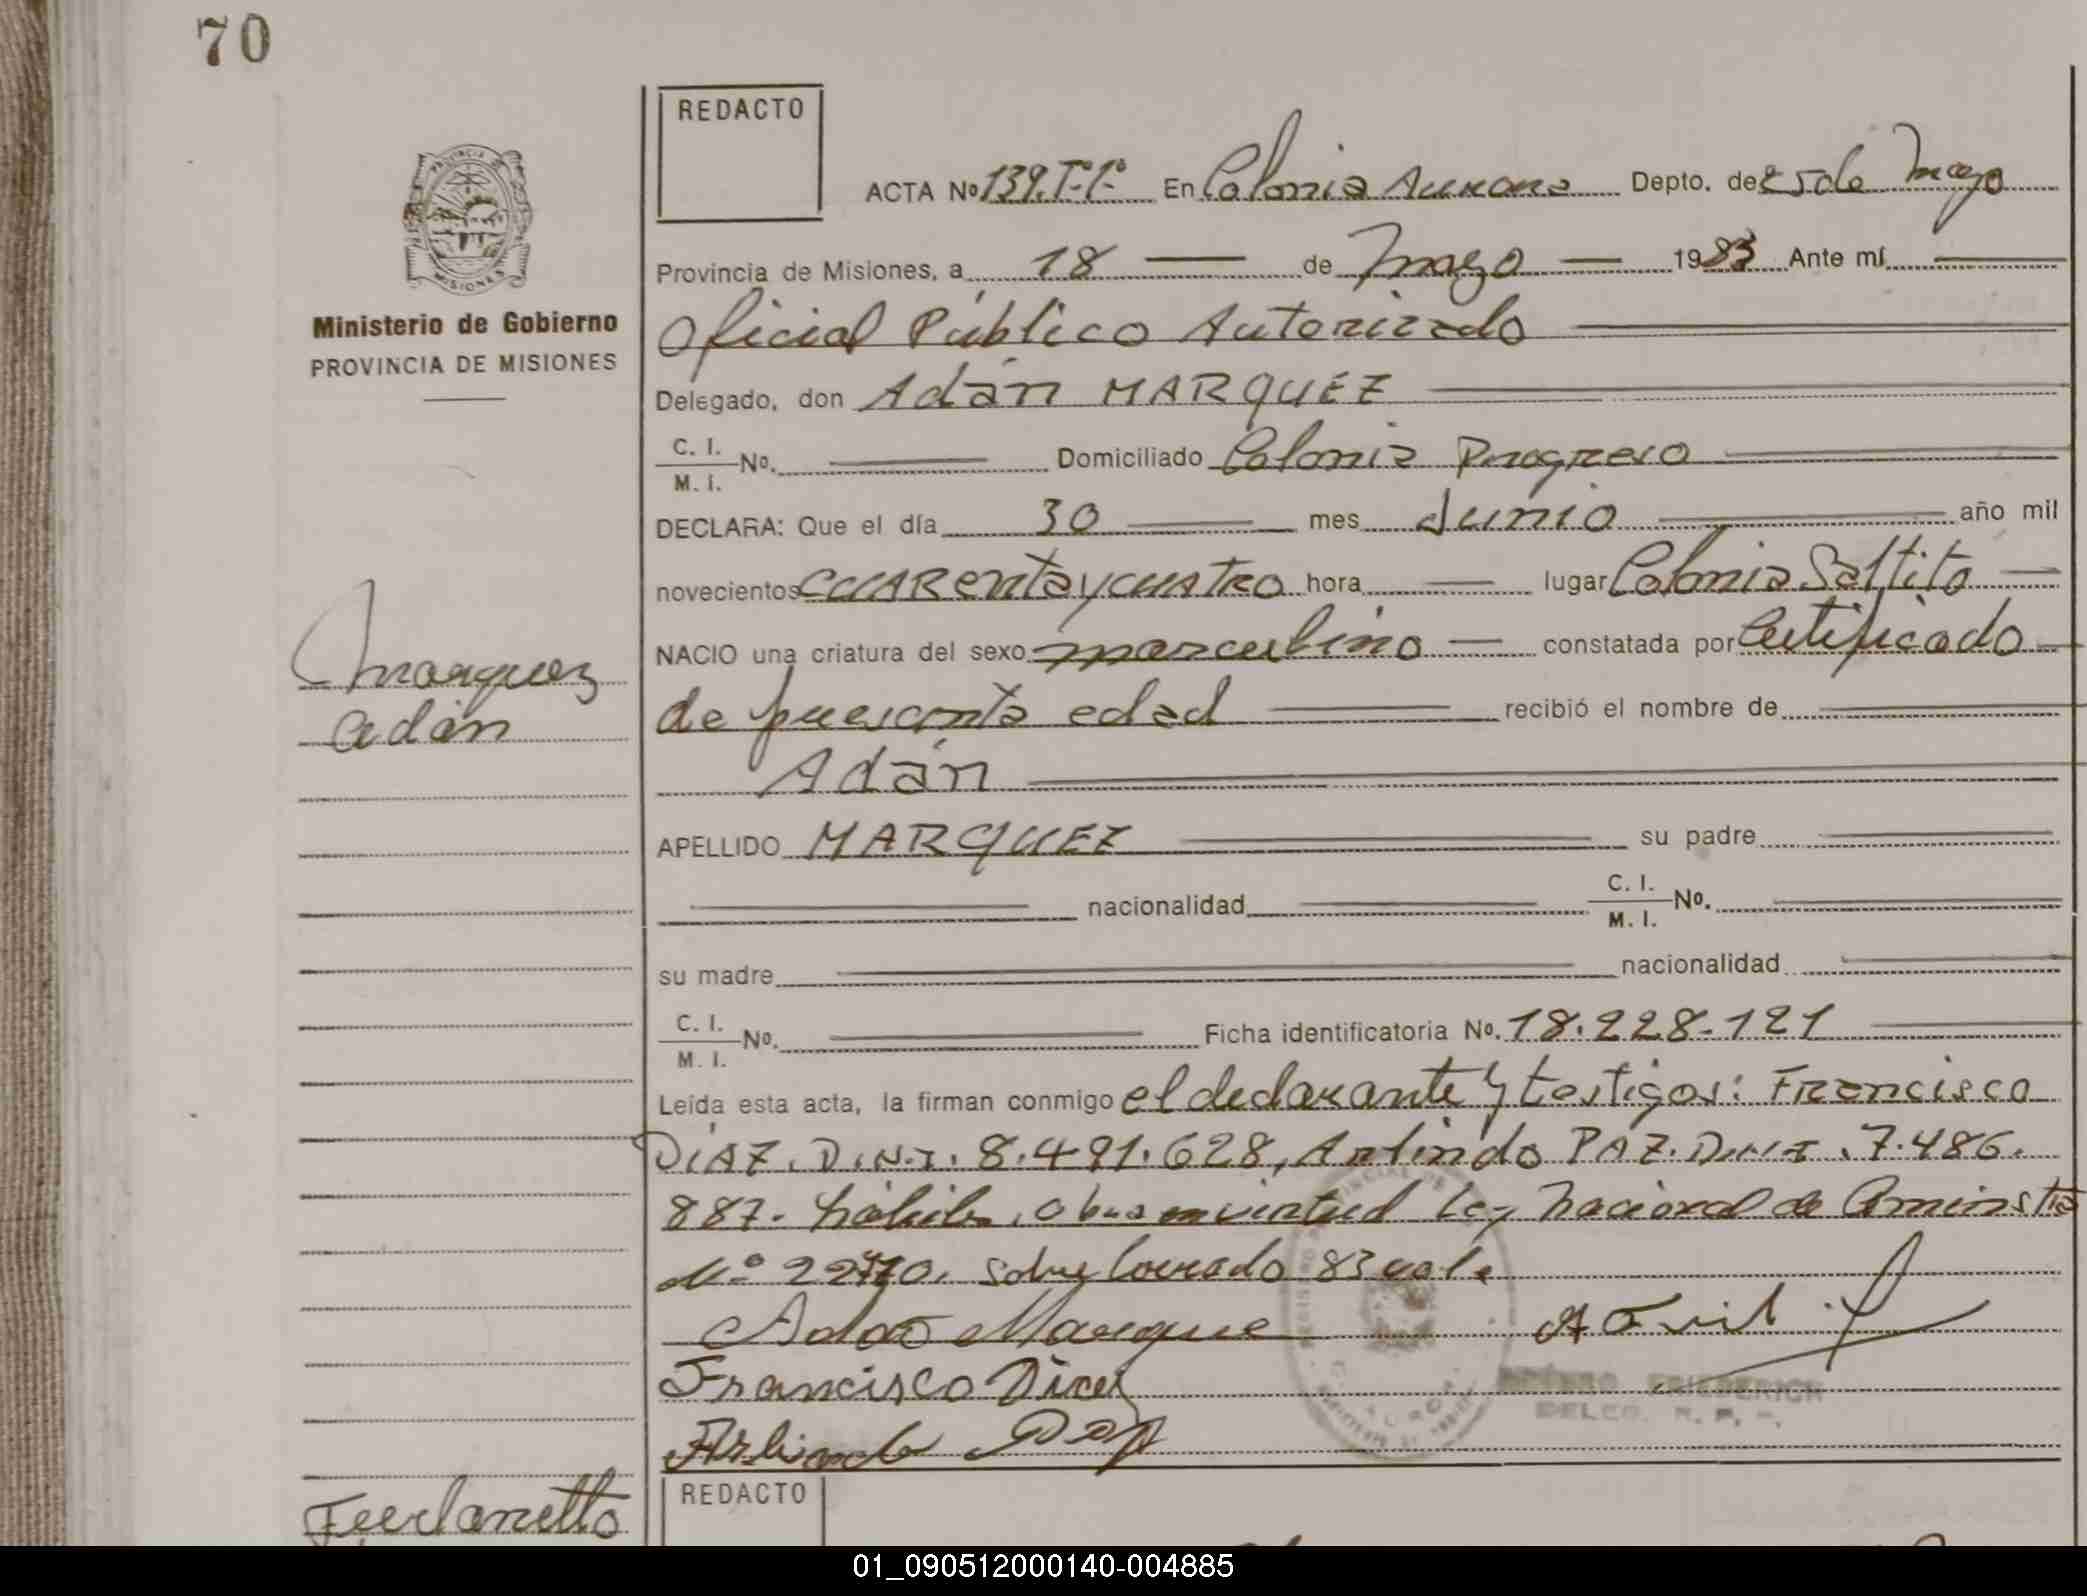 70
REDACTO
ACTA Nº 139.Tº1º En Colonia Aurora Depto. de 25 de Mayo
Provincia de Misiones, a 18 de mayo 1983 Ante mí
Oficial Público Autorizado
Ministerio de Gobierno
PROVINCIA DE MISIONES
Delegado, don Adán MARQUEZ
C. I.
M. I. Nº. Domiciliado Colonia Progreso
DECLARA: Que el día 30 mes Junio año mil
novecientos CUARENTA y CUATRO hora lugar Colonia Saltito
NACIO una criatura del sexo masculino constatada por Certificado
Marquez
Adán
de presunta edad recibió el nombre de
Adán
APELLIDO MARQUEZ su padre
nacionalidad C. I.
M. I. Nº.
su madre nacionalidad
C. I.
M. I. Nº. Ficha identificatoria Nº. 18.228.121
Leída esta acta, la firman conmigo el declarante y testigos: Francisco
DÍAZ. D.N.I. 8.491.628, Arlindo PAZ. D.N.I. 7.486.
887. hábiles, en virtud Ley Nacional de
Nº sobre 83 vale
Marque
Francisco Diaz
Arlindo Paz
FRIEDERICH
REDACTO
Furlanetto
01_090512000140-004885